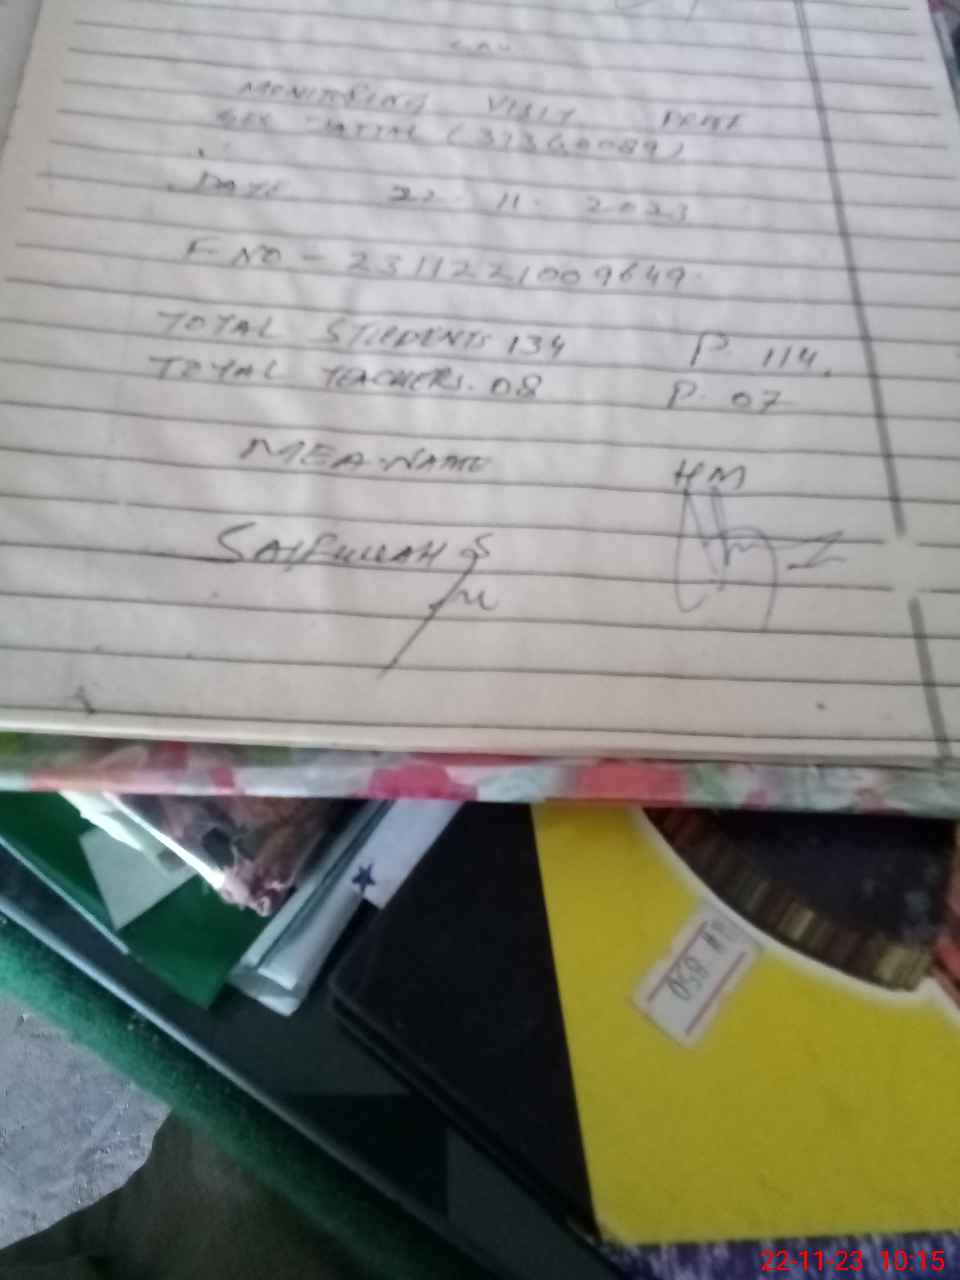 MONITORING VISIT
(37360089)
DATE 22.11.2023
F-NO - 2311221009649.
TOTAL STUDENTS 134 P. 114.
TOTAL TEACHERS. 08 P. 07
MEA-NAME HM
SAIFULLAH
850
22-11-23 10:15